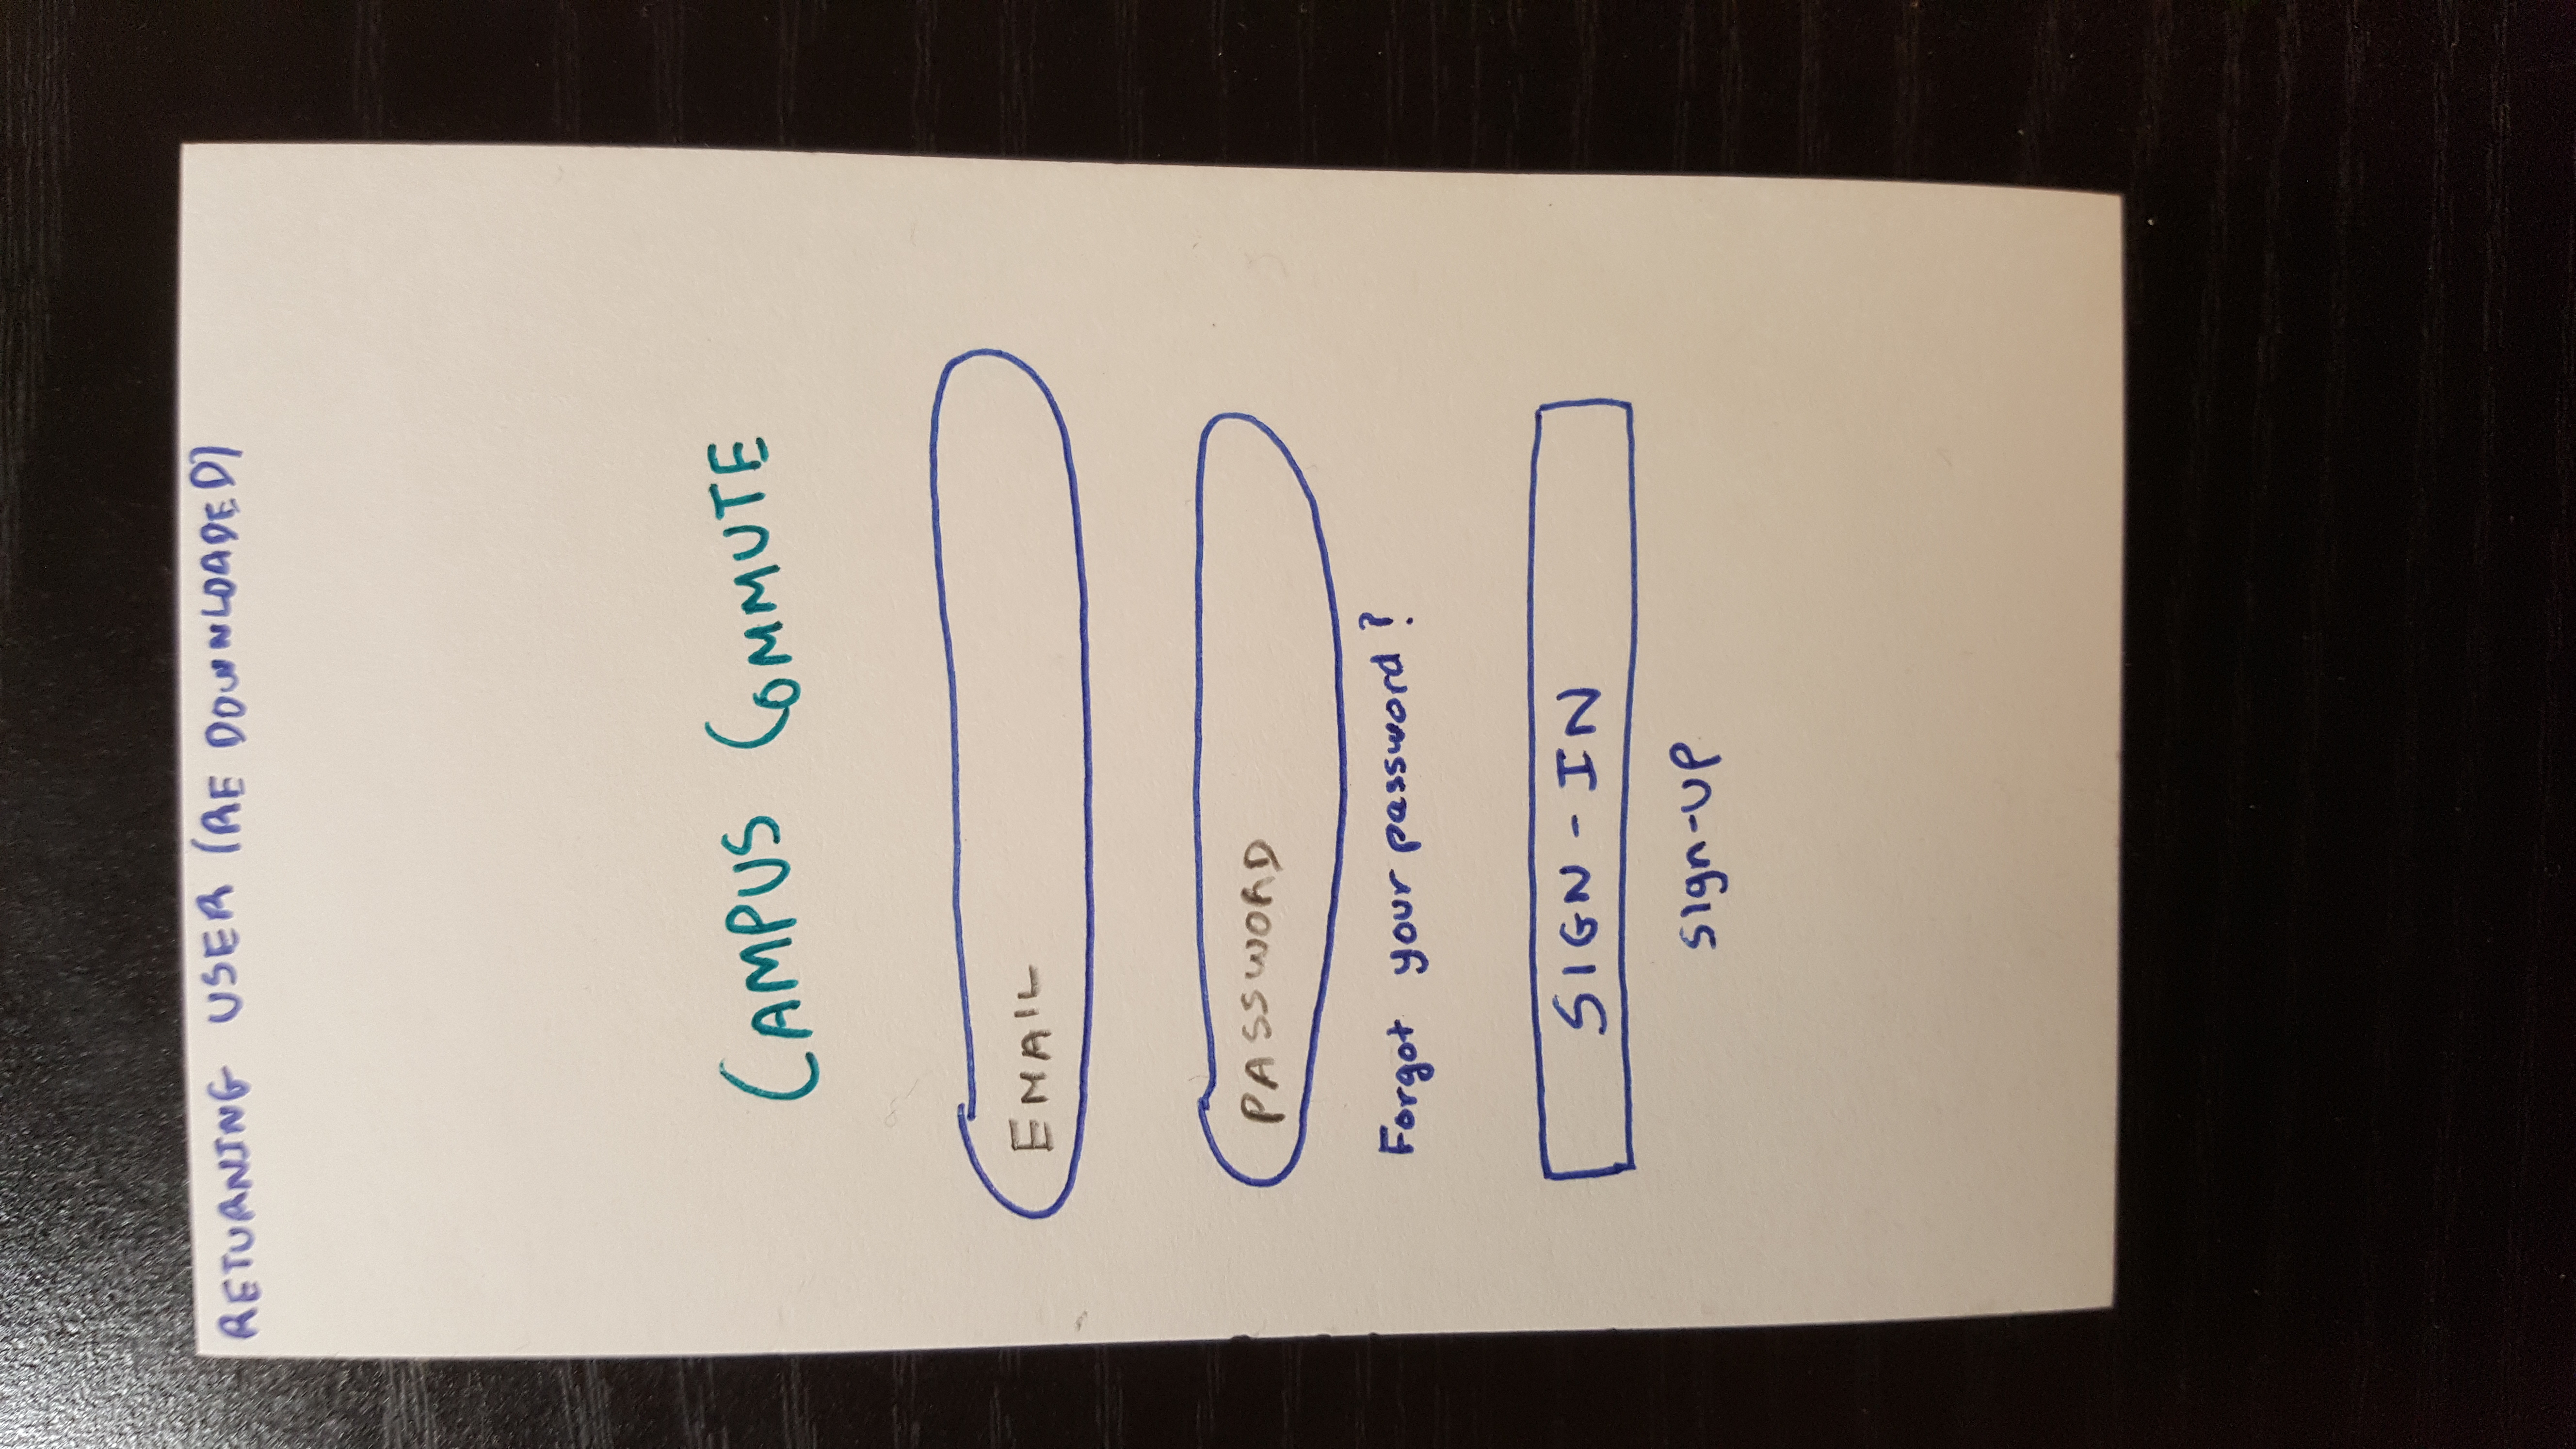 RETURNING USER (RE DOWNLOADED)
CAMPUS COMMUTE
EMAIL
PASSWORD
Forgot your password?
SIGN-IN
sign-up